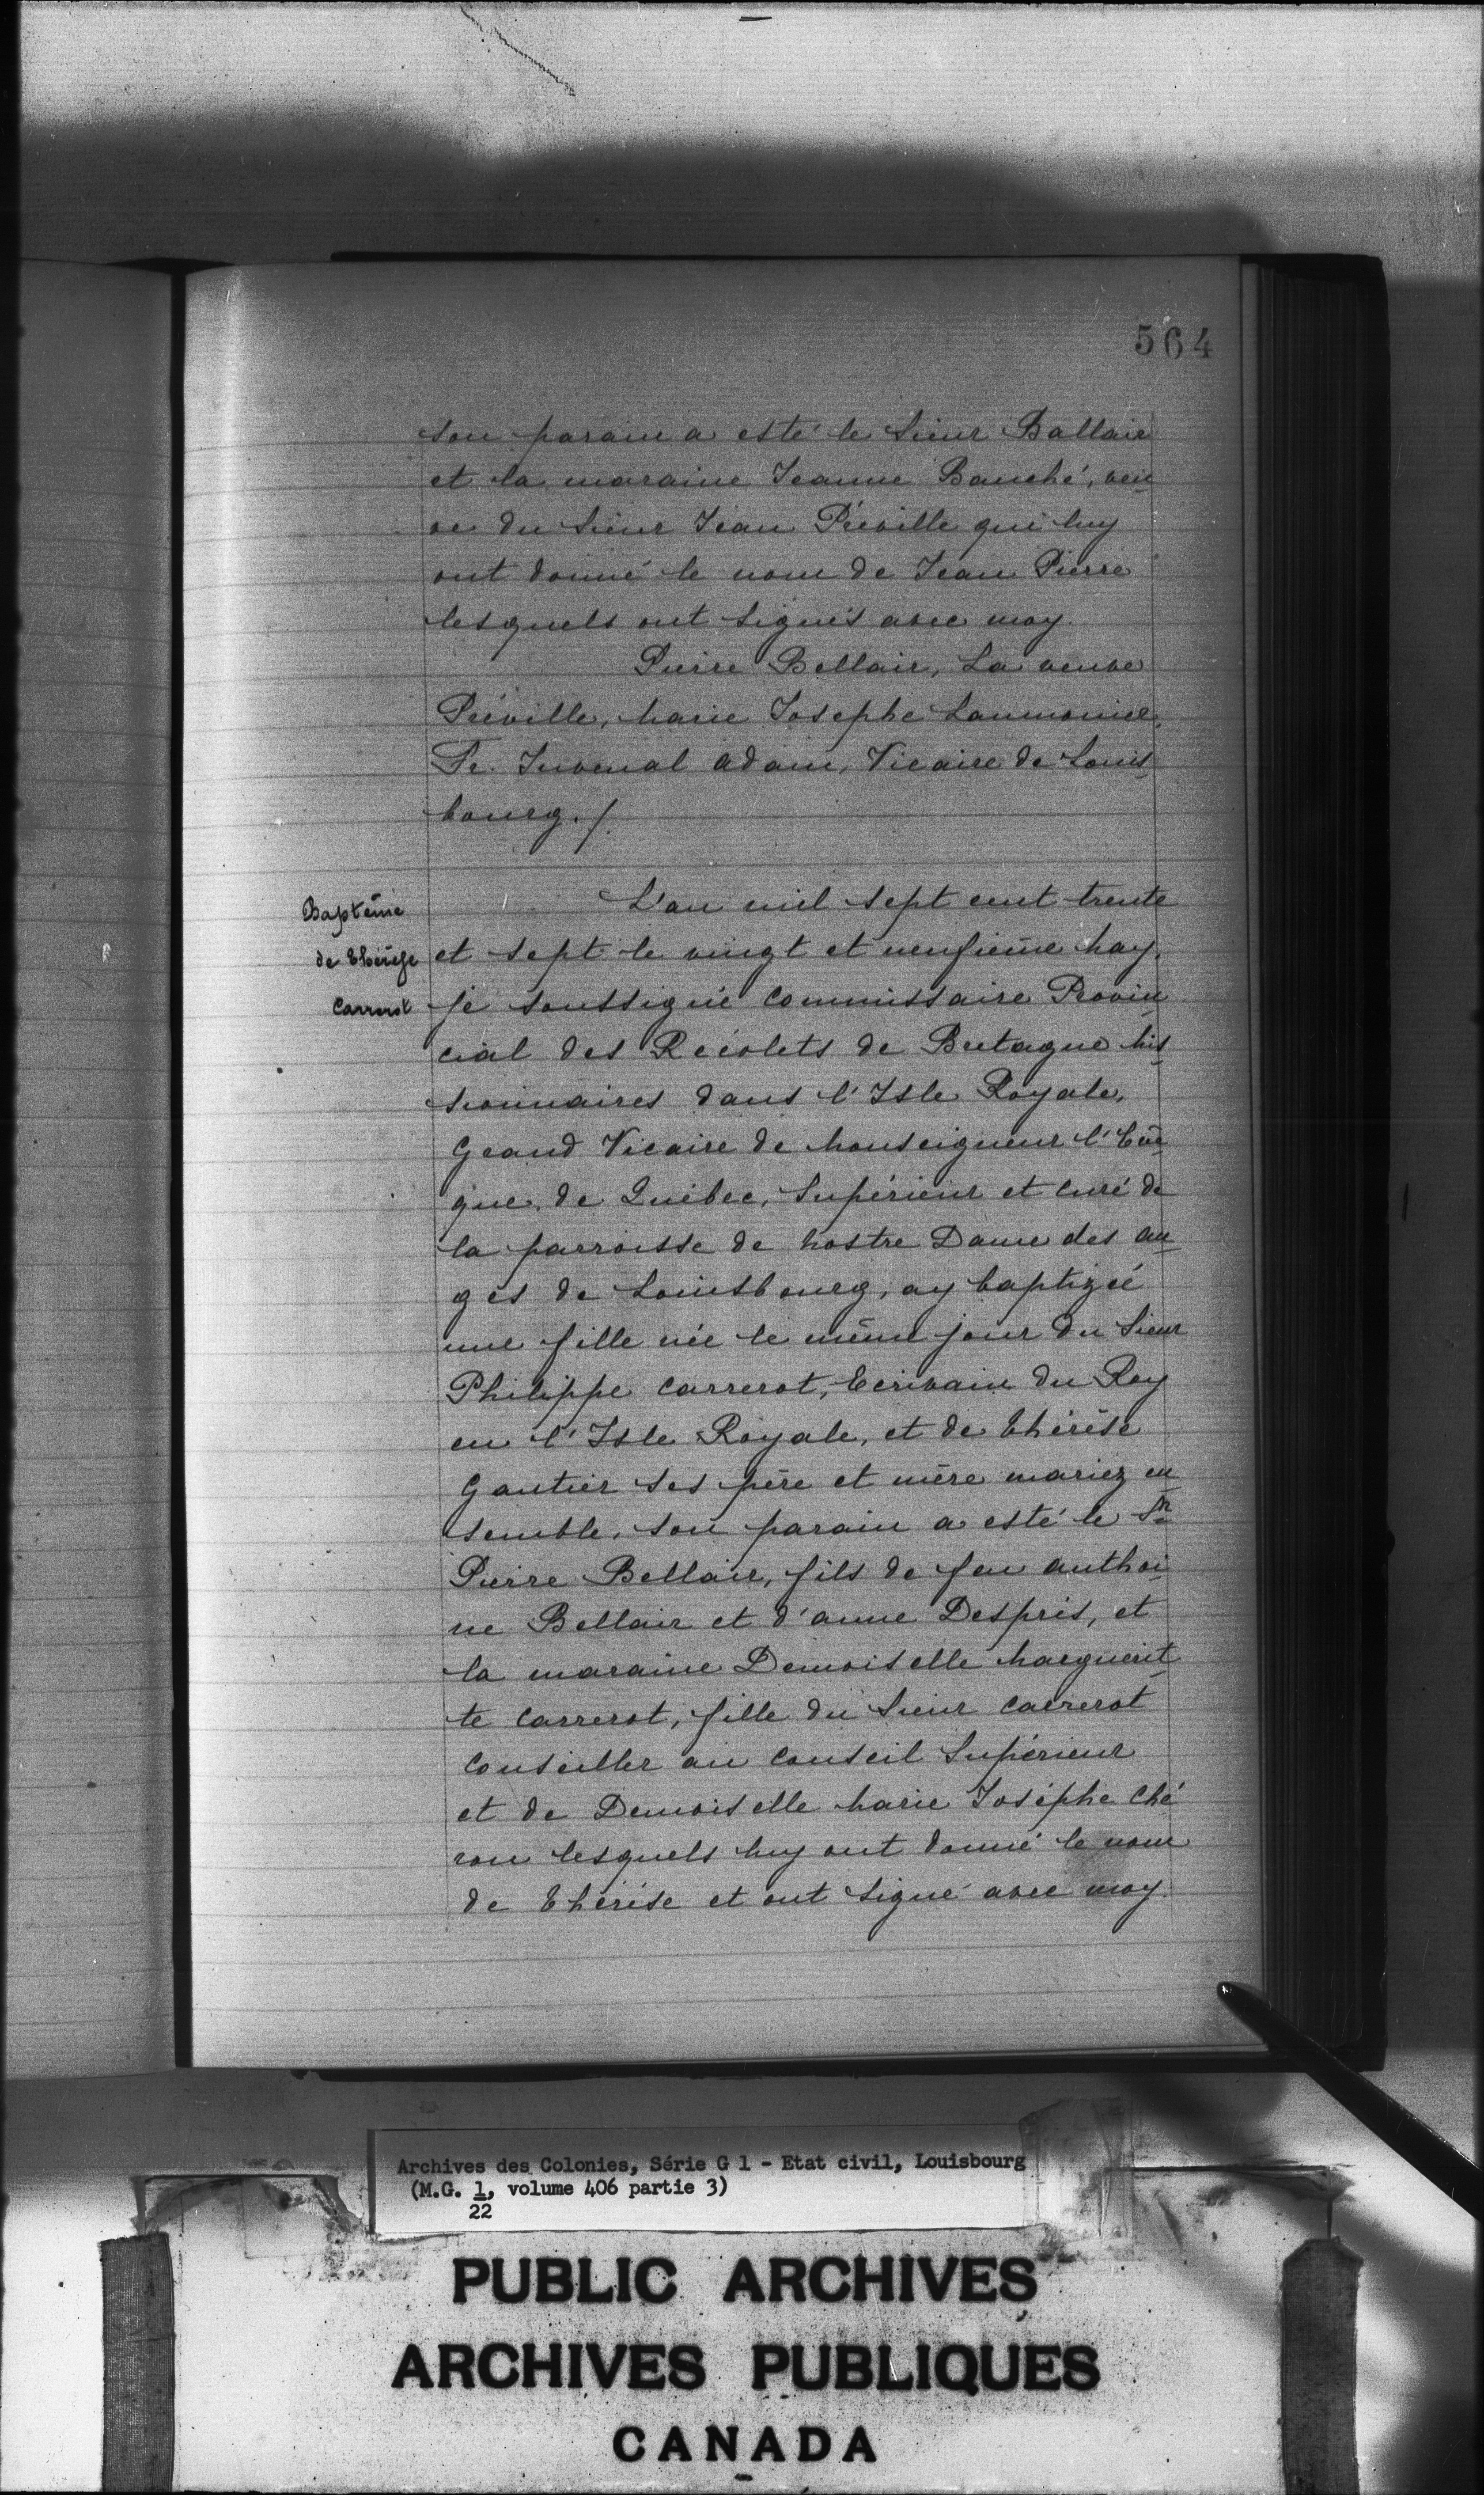 564
son parain a esté le Sieur Ballair
et la maraine Jeanne Bauché, veu
ve du Sieur Jean Préville qui luy
ont donné le nom de Jean Pierre
lesquels ont signés avec moy.
Pierre Bellair, La veuve
Préville, Marie Josephe Laumonier,
Fr. Juvenal Adam, Vicaire de Louis
bourg./.
Baptême
de Thérèse
Carrerot
L'an mil sept cent trente
et sept le vingt et neufieme May,
je soussigné Commissaire Provin
cial des Récolets de Bretagne Mis
sionnaires dans l'Isle Royale,
Grand Vicaire de Monseigneur l'Evê
que, de Québec, Supérieur et curé de
la parroisse de Nostre Dame des an
ges de Louisbourg, ay baptizée
une fille née le même jour du Sieur
Philippe Carrerot, Ecrivain du Roy
en l'Isle Royale, et de Thérèse
Gautier ses père et mère mariez en
semble. son parain a esté le Sr
Pierre Bellair, fils de feu Anthoi
ne Bellair et d'anne Desprès, et
la maraine Demoiselle Marguerit
te Carrerot, fille du Sieur Carrerot
Conseiller au Conseil Supérieur
et de Demoiselle Marie Joséphe Ché
ron lesquels luy ont donné le nom
de Thérèse et ont signé avec moy.
Archives des Colonies, Série G 1 - Etat civil, Louisbourg
(M.G. 1, volume 406 partie 3)
22
PUBLIC ARCHIVES
ARCHIVES PUBLIQUES
CANADA